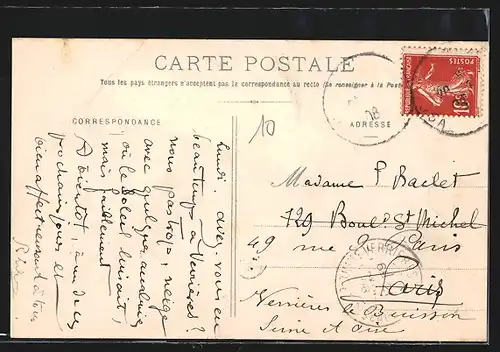 CARTE POSTALE
Tous les pays étrangers n'acceptent pas la correspondance au recto (Se renseigner à la Poste
CORRESPONDANCE
ADRESSE
10
Lundi. avez-vous eu
beaucoup à Verrières?
nous pas trop, neige
avec quelques
où le soleil luisait,
mais faiblement
A bientôt, un de ces
prochains jours, et
bien affectueusement à tous
Madame P Bachet
129 Boul. St Michel
49 rue de Paris
Paris
Verrières le Buisson
Seine et Oise
POSTES
REPUBLIQUE FRANÇAISE
10